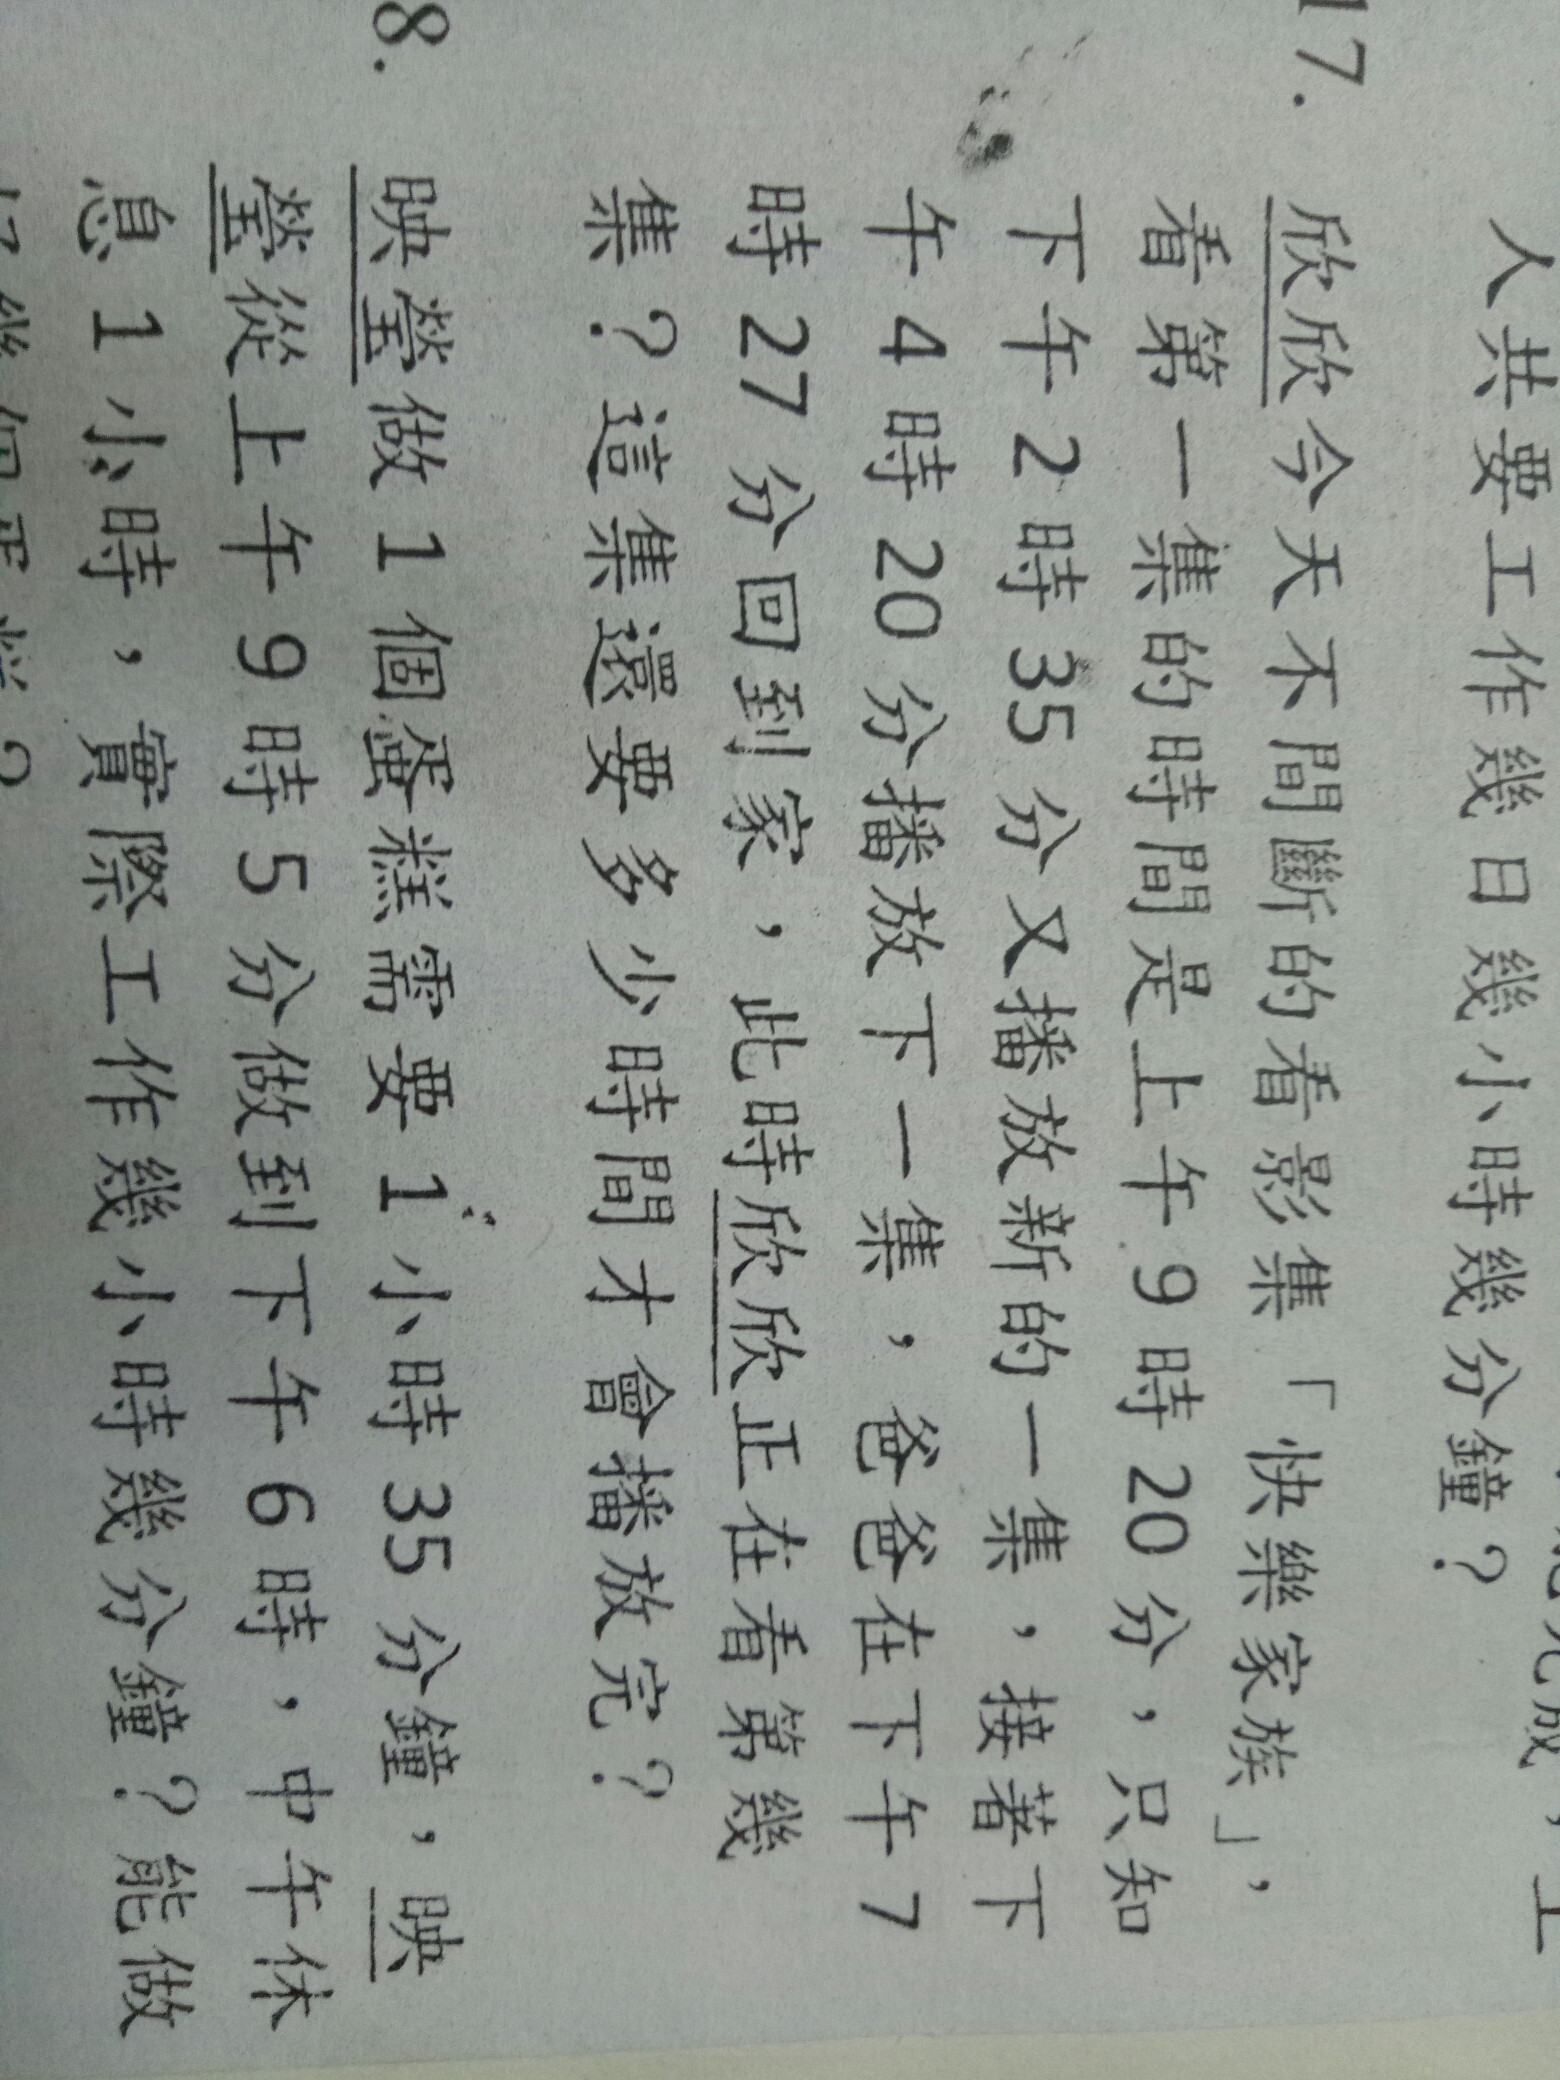 人共要工作幾日幾小時幾分鐘?
17. 欣欣今天不間斷的看影集「快樂家族」,
看第一集的時間是上午9時20分,只知
下午2時35分又播放新的一集,接著下
午4時20分播放下一集,爸爸在下午7
時27分回到家,此時欣欣正在看第幾
集?這集還要多少時間才會播放完?
8. 映瑩做1個蛋糕需要1小時35分鐘,映
瑩從上午9時5分做到下午6時,中午休
息1小時,實際工作幾小時幾分鐘?能做